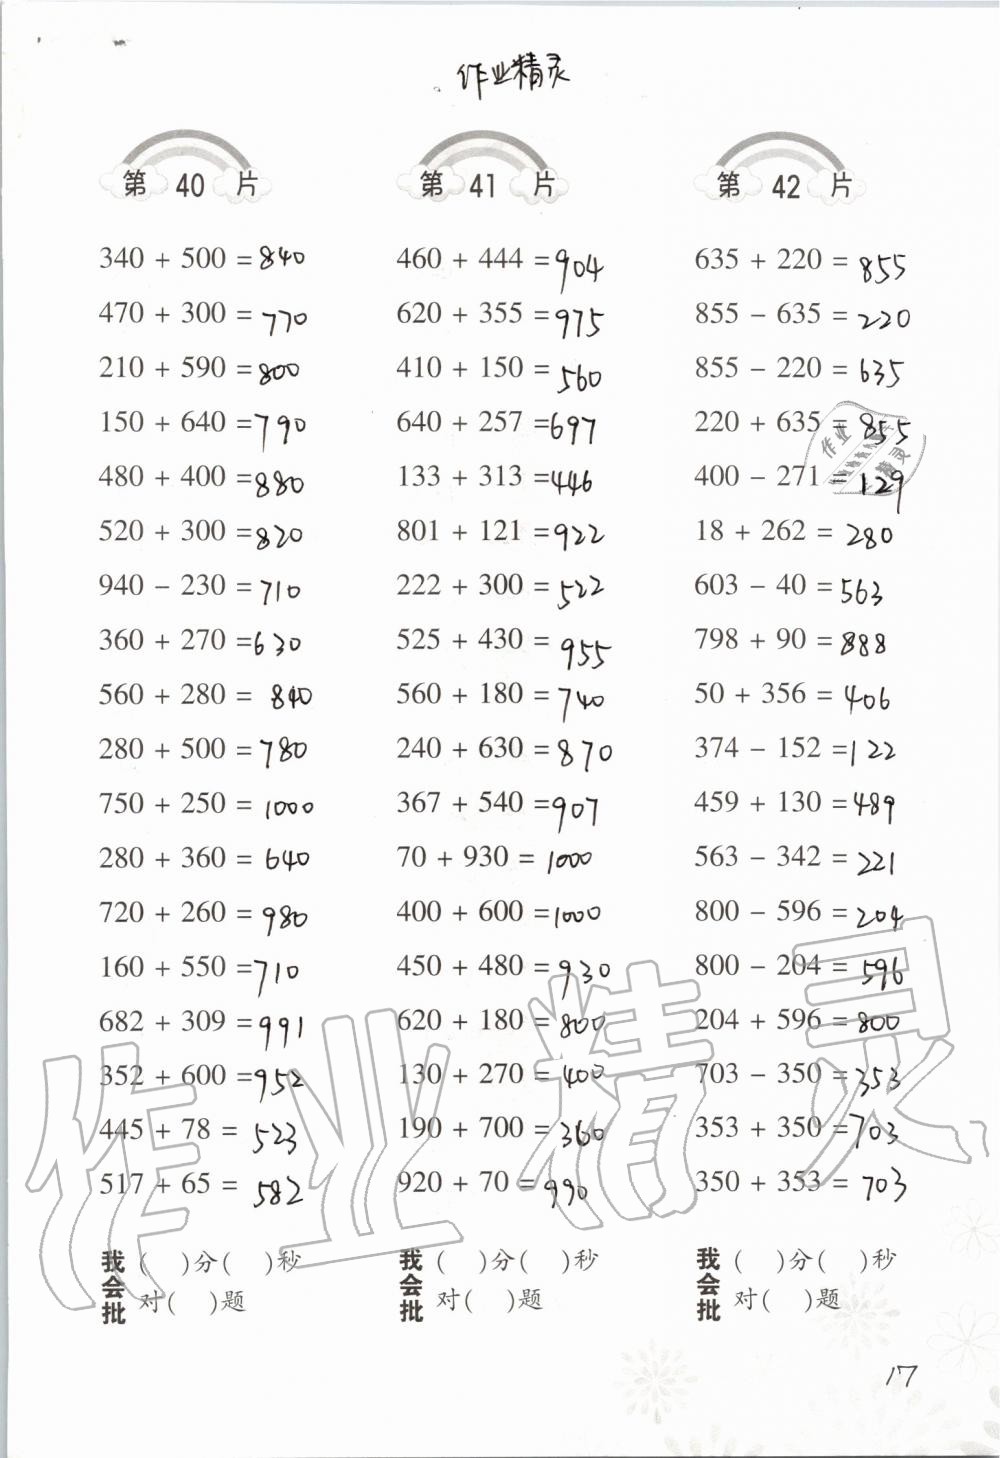 作业精灵
第 40 片
340 + 500 = 840
470 + 300 = 770
210 + 590 = 800
150 + 640 = 790
480 + 400 = 880
520 + 300 = 820
940 - 230 = 710
360 + 270 = 630
560 + 280 = 840
280 + 500 = 780
750 + 250 = 1000
280 + 360 = 640
720 + 260 = 980
160 + 550 = 710
682 + 309 = 991
352 + 600 = 952
445 + 78 = 523
517 + 65 = 582
我会批
( )分( )秒
对( )题
第 41 片
460 + 444 = 904
620 + 355 = 975
410 + 150 = 560
640 + 257 = 697
133 + 313 = 446
801 + 121 = 922
222 + 300 = 522
525 + 430 = 955
560 + 180 = 740
240 + 630 = 870
367 + 540 = 907
70 + 930 = 1000
400 + 600 = 1000
450 + 480 = 930
620 + 180 = 800
130 + 270 = 400
190 + 700 = 360
920 + 70 = 990
我会批
( )分( )秒
对( )题
第 42 片
635 + 220 = 855
855 - 635 = 220
855 - 220 = 635
220 + 635 = 855
400 - 271 = 129
18 + 262 = 280
603 - 40 = 563
798 + 90 = 888
50 + 356 = 406
374 - 152 = 122
459 + 130 = 489
563 - 342 = 221
800 - 596 = 204
800 - 204 = 596
204 + 596 = 800
703 - 350 = 353
353 + 350 = 703
350 + 353 = 703
我会批
( )分( )秒
对( )题
作业精灵
作业
精灵
17